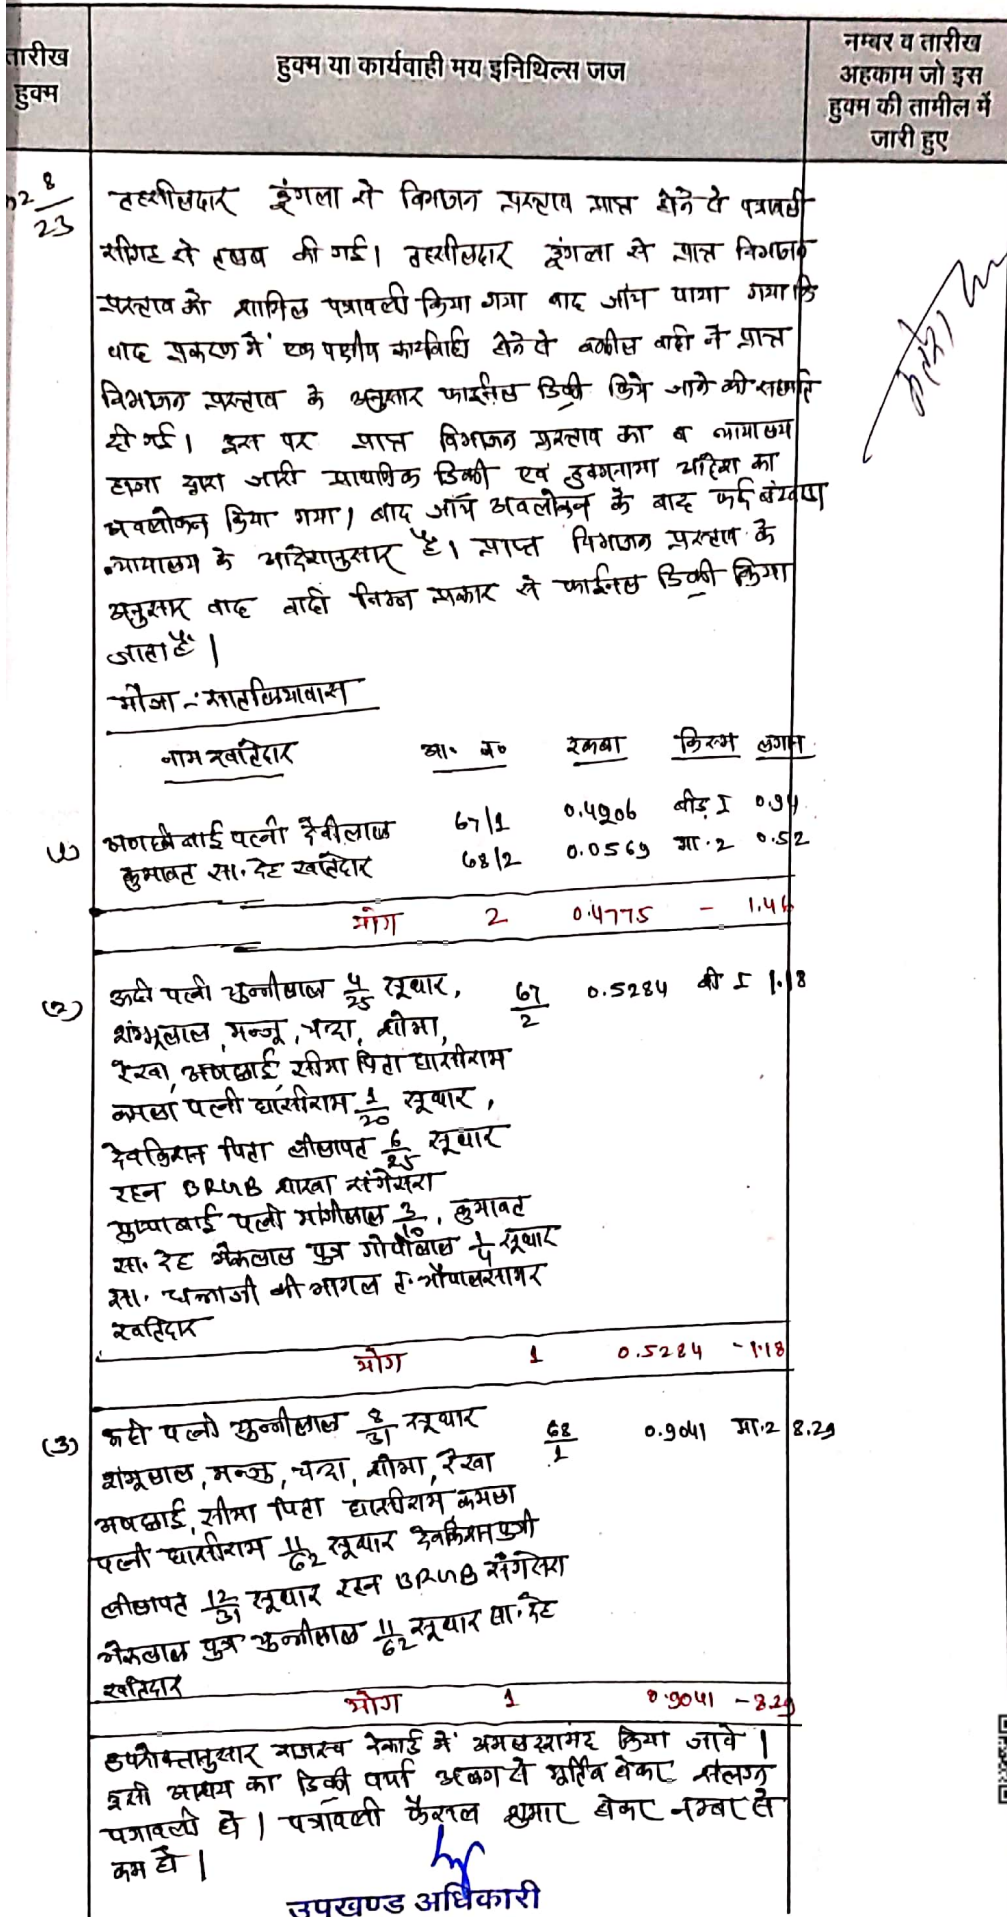 तारीख
हुक्म
हुक्म या कार्यवाही मय इनिथिल्स जज
नम्बर व तारीख
अहकाम जो इस
हुक्म की तामील में
जारी हुए
8
23
तहसीलदार डूंगला से विभाजन प्रस्ताव प्राप्त होने से पत्रावली
सीगह से तलब की गई। तहसीलदार डूंगला से प्राप्त विभाजन
प्रस्ताव को शामिल पत्रावली किया गया बाद जांच पाया गया कि
वाद प्रकरण में एक पक्षीय कार्यवाही होने से वकील वादी ने प्राप्त
विभाजन प्रस्ताव के अनुसार फाईनल डिक्री किये जाने की सहमति
दी गई। इस पर प्राप्त विभाजन प्रस्ताव का व न्यायालय
हाजा द्वारा जारी प्राथमिक डिक्री एवं हुक्मनामा आदेश का
अवलोकन किया गया। बाद जाँच अवलोकन के बाद
न्यायालय के आदेशानुसार है। प्राप्त विभाजन प्रस्ताव के
अनुसार वाद वादी निम्न प्रकार से फाईनल डिक्री किया
जाता है।
मौजा :-
नाम खातेदार आ. न. रकबा किस्म लगान
(1) देवीलाल 67/1 0.4206 बीड़ I 0.94
कुमावत सा. देह खातेदार 68/2 0.0569 मा.2 0.52
योग 2 0.4775 - 1.46
(2) पत्नी चुन्नीलाल 4/25 सुथार, 67/2 0.5284 बी I 1.18
शंभूलाल, मन्जू, चन्दा, शोभा,
रेखा, सीमा पिता घासीराम
कमला पत्नी घासीराम 1/20 सुथार,
देवकिशन पिता 6/25 सुथार
रहन BRGB शाखा संगेसरा
पुष्पाबाई पत्नी मांगीलाल 3/10, कुमावत
सा. देह भैरूलाल पुत्र गोपीलाल 1/4 सुथार
सा. की भागल त. भोपालसागर
खातेदार
योग 1 0.5284 - 1.18
(3) पत्नी चुन्नीलाल 8/31 सुथार 68/1 0.9041 मा.2 8.29
शंभूलाल, मन्जू, चन्दा, शोभा, रेखा
सीमा पिता घासीराम, कमला
पत्नी घासीराम 11/62 सुथार देवकिशन
12/31 सुथार रहन BRGB संगेसरा
भैरूलाल पुत्र चुन्नीलाल 11/62 सुथार सा. देह
खातेदार
योग 1 0.9041 - 8.29
उपरोक्तानुसार राजस्व रेकार्ड में अमलदरामद किया जावे।
इसी आशय का डिक्री पर्चा अलग से मुर्तिब होकर संलग्न
पत्रावली हो। पत्रावली फैसल शुमार होकर नम्बर से
कम हो।
उपखण्ड अधिकारी